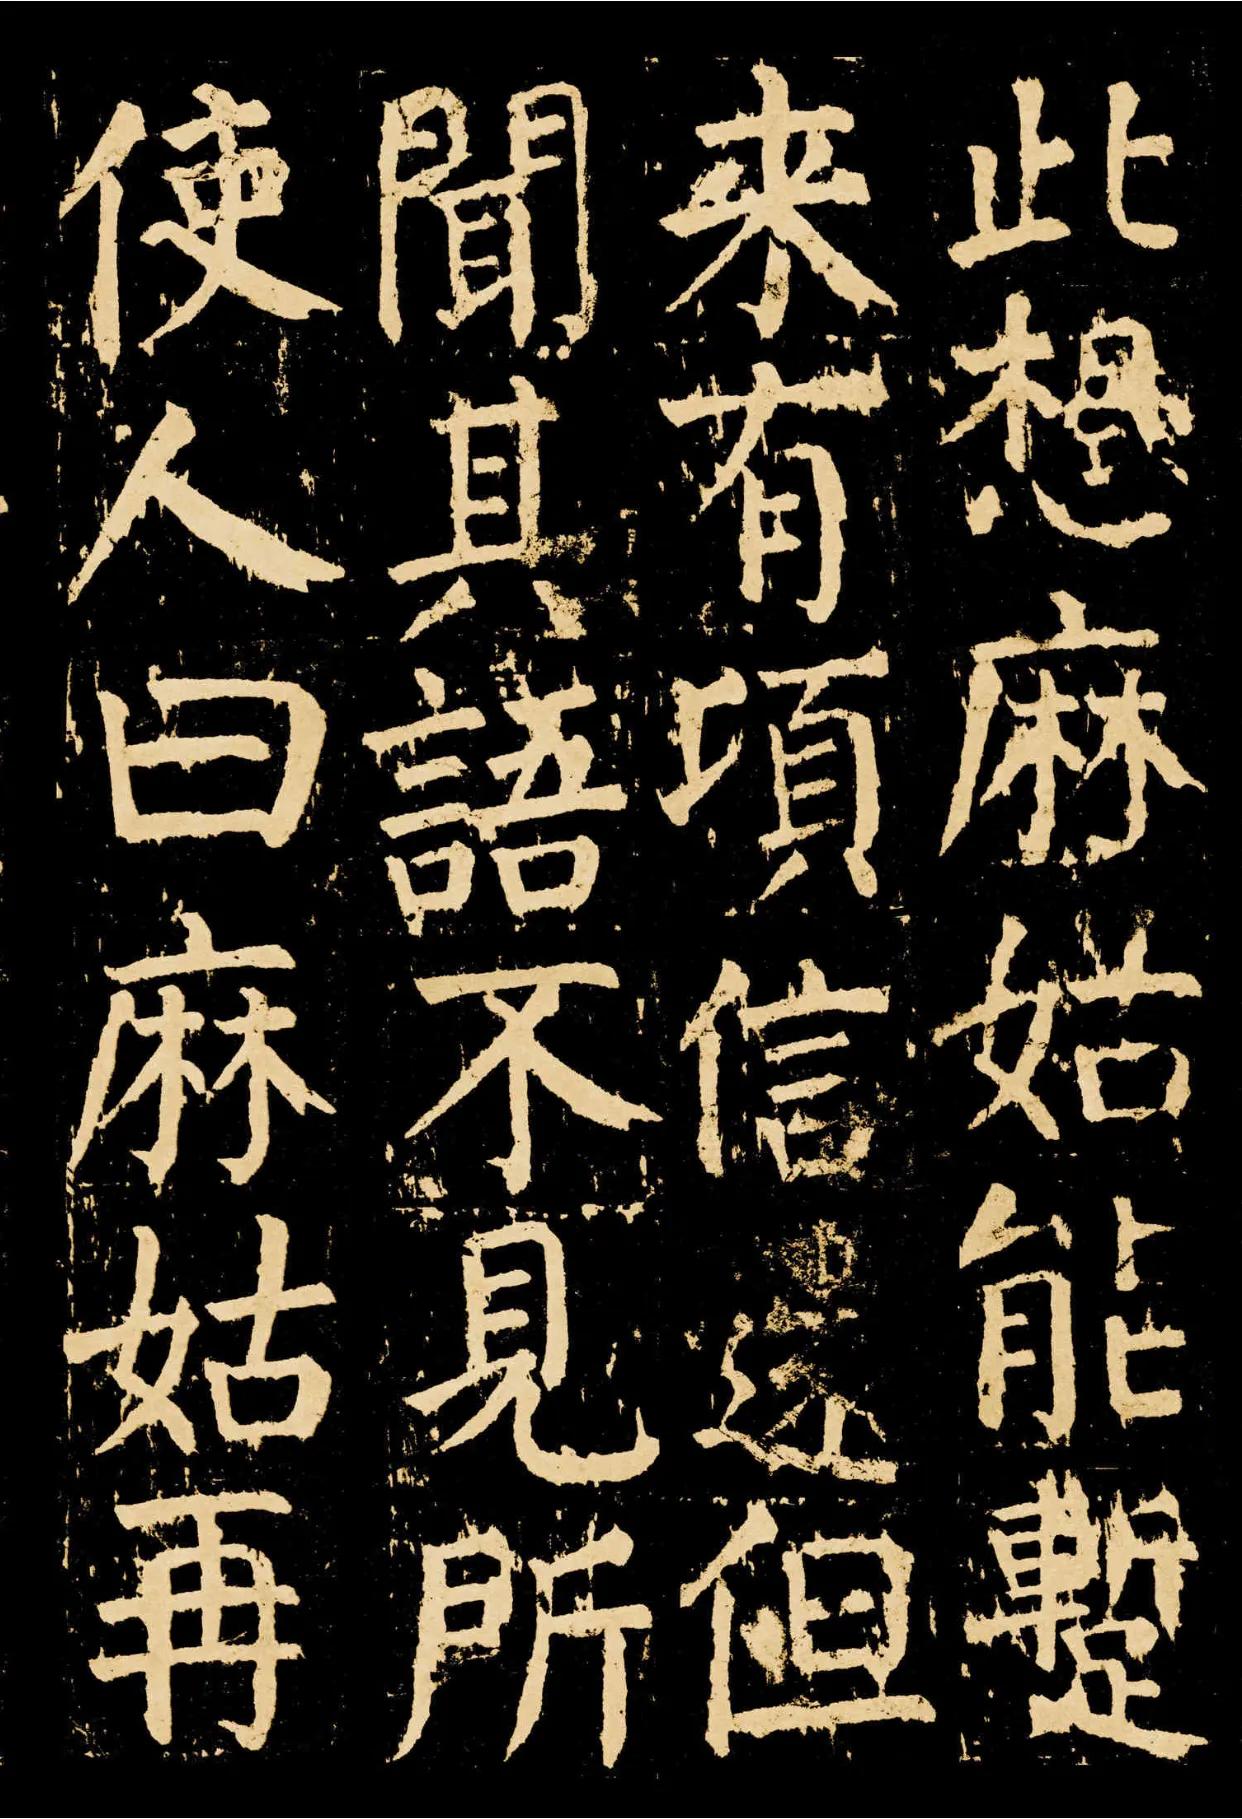 此想麻姑能蹔
来有頃信還但
聞其語不見所
使人曰麻姑再